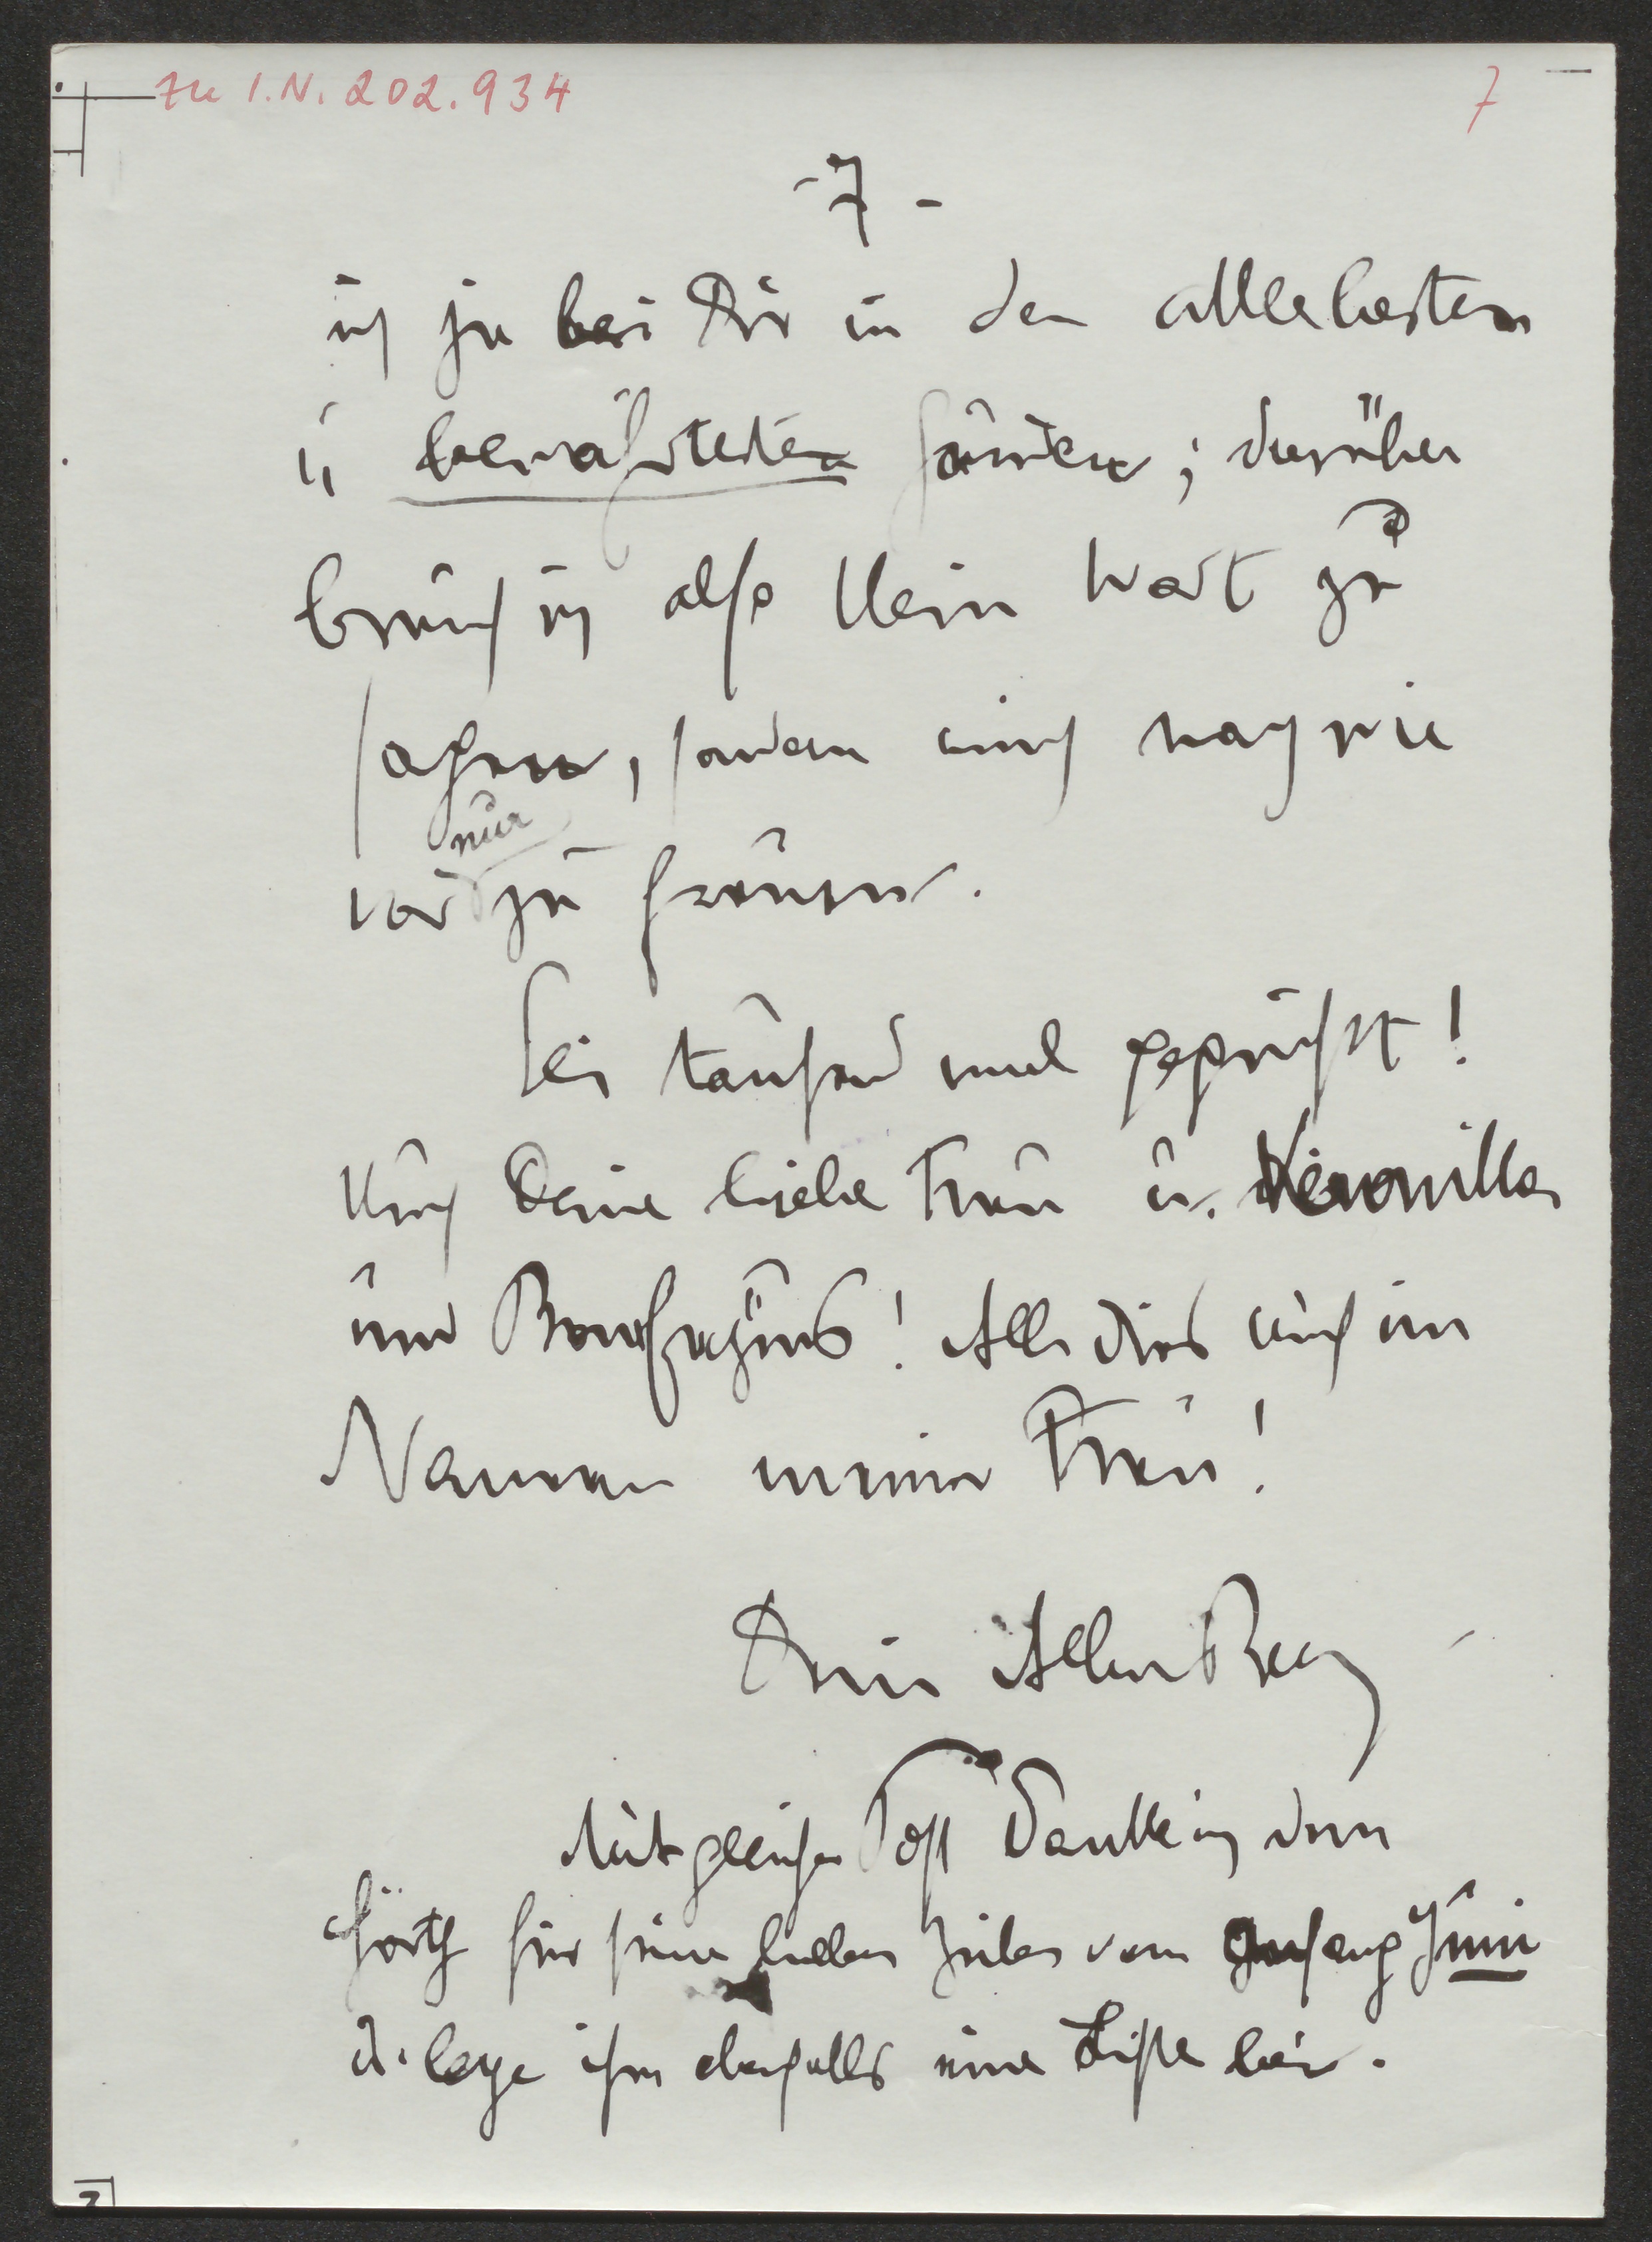 zu I.N. 202.934 7
- 7 -
ich ja bei Dir in den allerbesten
u bewährtesten Händen; darüber
brauch ich also kein Wort zu
sagen, sondern mich nach wie
vor nur zu freuen.
Sei tausend mal gegrüßt!
Auch Deine liebe Frau u. Veronika
und Bonifazius! Alles dies auch im
Namen meiner Frau!
Dein Alban Berg
Mit gleicher Post danke ich dem
Hörth für seine lieben Zeilen vom Anfang Juni
u. lege ihm ebenfalls eine Liste bei.